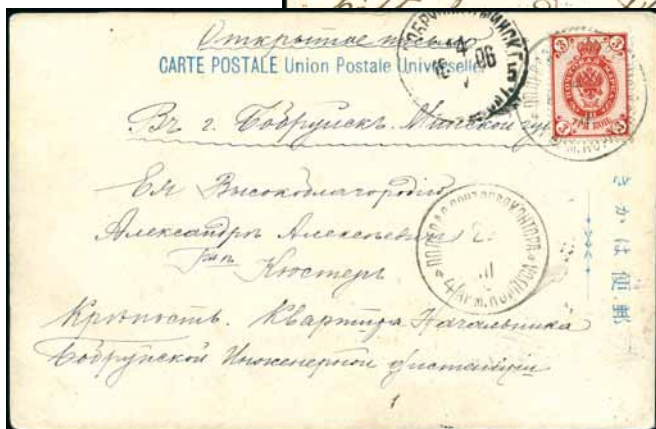 Открытое письмо
CARTE POSTALE Union Postale Universelle.
Въ г. Бобруйскъ. Минской гу
Ея Высокоблагородію
Александръ Алексѣевнѣ
Г-жѣ
Кюстеръ
Крѣпость. Квартира Начальника
Бобруйской Инженерной дистанціи
3 3
ТРИ КОП.
3 3
БОБРУЙСКЪ МИНСК. Г.
4 06
5
ПОЛЕВАЯ ПОЧТОВАЯ КОНТОРА
III
4 АРМ. КОРПУСА
きかは便郵